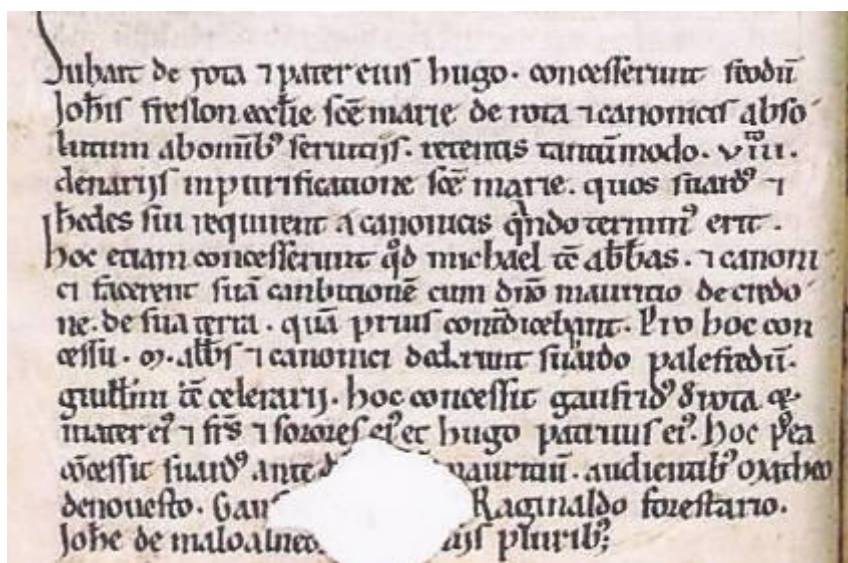 Suhart de rota ⁊ pater eius hugo. concesserunt feodū
Joħis freslon eccłie sc̄e marie de rota ⁊ canonicis abso
lutum ab omīb᷒ seruitijs. retentis tantūmodo. viii.
denarijs in purificatione sc̄e marie. quos suard᷒ ⁊
ħedes sui requirent a canonicis qn̄do termin᷒ erit.
hoc etiam concesserunt qd̄ michael tc̄ abb̄as. ⁊ canoni
ci facerent suā canbitionē cum dn̄o mauricio de credo
ne. de sua terra. quā prius contᵃdicebant. Pro hoc con
cessu. m. abb̄s ⁊ canonici dederunt suardo palefredū.
guilłmi tc̄ celerarij. hoc concessit gaufrid᷒ d̄ rota et
mater ei᷒ ⁊ fr̄s ⁊ sorores ei᷒ et hugo patruus ei᷒. hoc p᷒ea
cōcessit suard᷒ ante mauritiū. audientib᷒ matheo
denouesto. Raginaldo forestario.
Joħe de maloalneto plurib᷒;